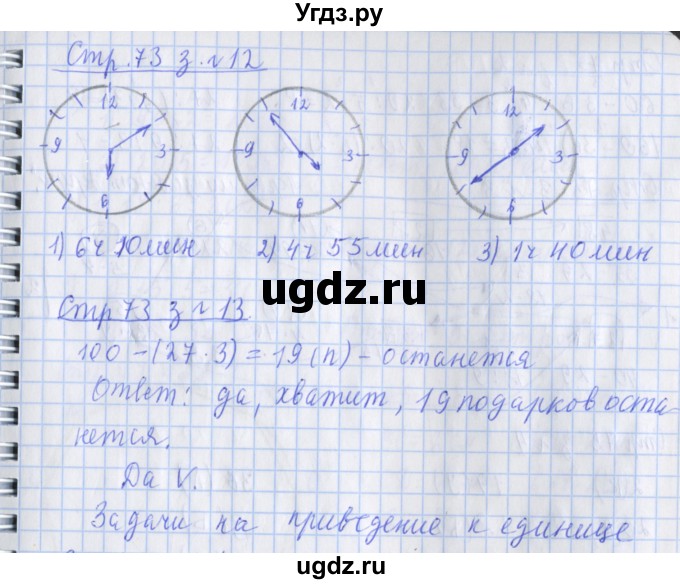 Угдз.ру
Стр. 73 з. №12
12 12 12
9 3 9 3 9 3
6 6 6
1) 6ч 10мин 2) 4ч 55мин 3) 1ч 40мин
ugdz.ru
Стр 73 з № 13.
100 - (27 · 3) = 19 (п) - останется
Ответ: да, хватит, 19 подарков оста-
нется.
Да V.
Задачи на приведение к единице
ugdz.ru